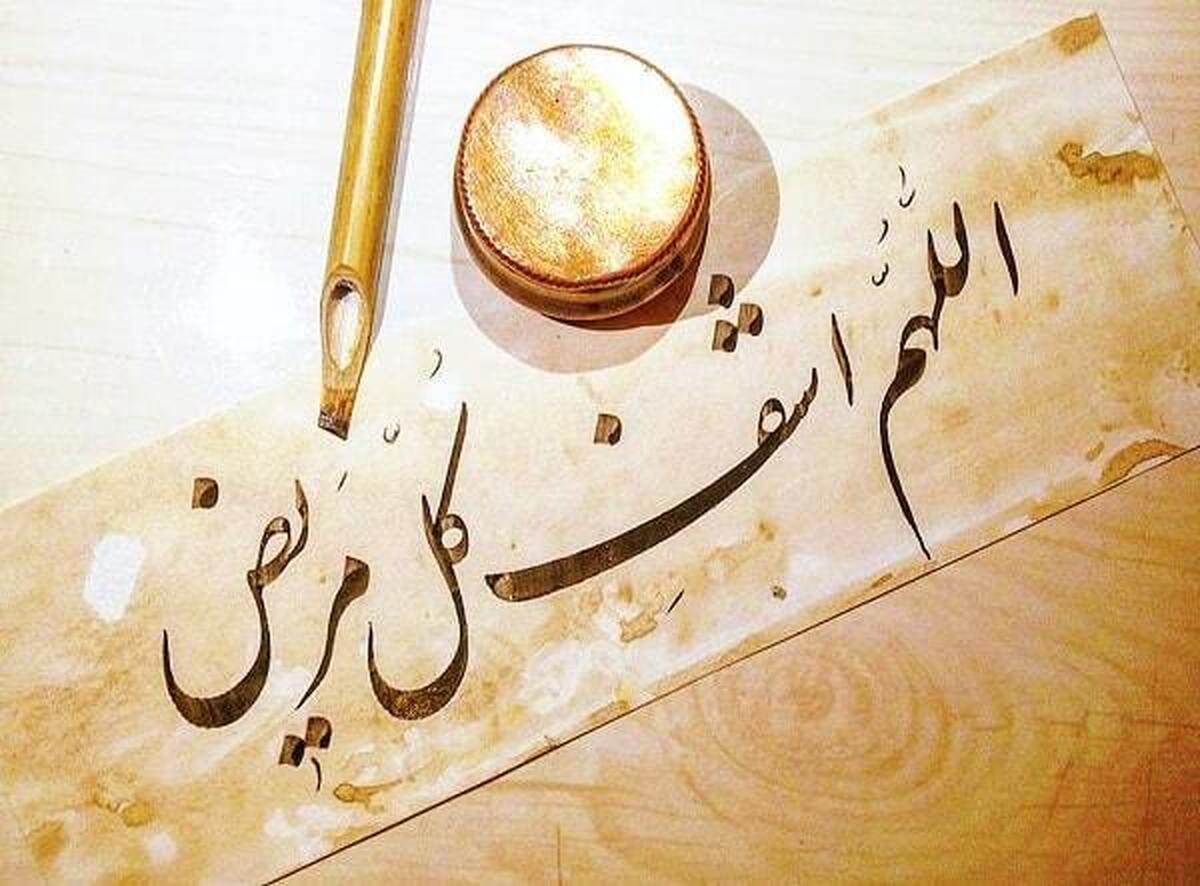 اللهم اشف كل مريض